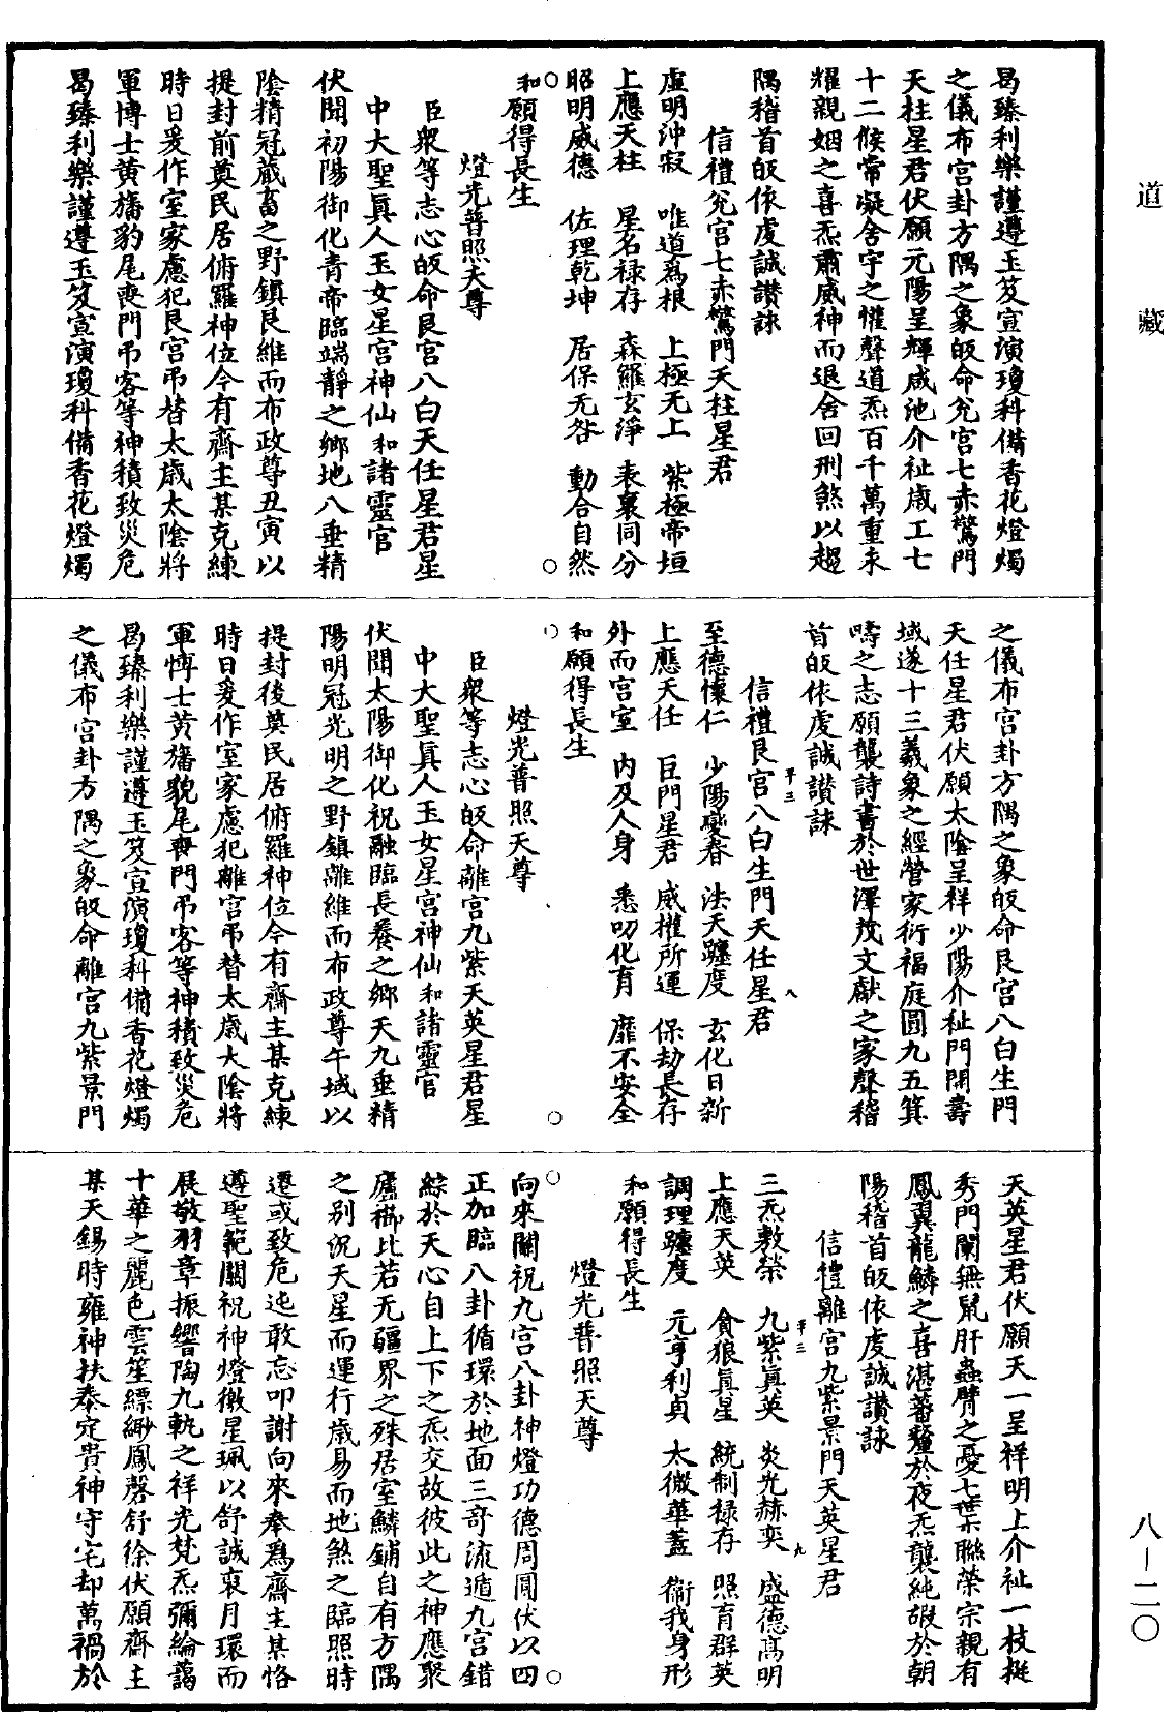 道藏
八—二〇
曷臻利樂謹遵玉笈宣演瓊科備香花燈燭
之儀布宫卦方隅之象皈命兊宫七赤驚門
天柱星君伏願元陽呈輝咸池介祉歳工七
十二候常凝舍宇之懽聲道炁百千萬重来
耀親姻之喜炁肅威神而退舍回刑煞以趨
隅稽首皈依虔誠讃詠
信禮兊宫七赤驚門天柱星君
虚明沖寂　唯道爲根　上極无上　紫極帝垣
上應天柱　星名禄存　森羅玄淨　表裏同分
昭明威德　佐理乾坤　居保无咎　動合自然
和願得長生
燈光普照天尊
臣衆等志心皈命艮宫八白天任星君星
中大聖眞人玉女星宫神仙和諸靈官
伏聞初陽御化青帝臨端靜之鄉地八垂精
隂精冠蔵畜之野鎮艮維而布政尊丑寅以
提封前奠民居俯羅神位今有齋主某克練
時日爰作室家慮犯艮宫吊替太歳太隂將
軍博士黄旛豹尾喪門吊客等神積致災危
曷臻利樂謹遵玉笈宣演瓊科備香花燈燭
之儀布宫卦方隅之象皈命艮宫八白生門
天任星君伏願太隂呈祥少陽介祉門開壽
域遂十三羲象之經營家衍福庭圓九五箕
疇之志願襲詩書於世澤茂文獻之家聲稽
首皈依虔誠讃詠
信禮艮宫八白生門天任星君
平三
八
至德懷仁　少陽變春　法天躔度　玄化日新
上應天任　巨門星君　威權所運　保劫長存
外而宫室　内及人身　悉叨化育　靡不安全
和願得長生
燈光普照天尊
臣衆等志心皈命離宫九紫天英星君星
中大聖眞人玉女星宫神仙和諸靈官
伏聞太陽御化祝融臨長養之鄉天九垂精
陽明冠光明之野鎮離維而布政尊午域以
提封後奠民居俯羅神位今有齋主某克練
時日爰作室家慮犯離宫吊替太歳太隂將
軍博士黄旛豹尾喪門吊客等神積致災危
曷臻利樂謹遵玉笈宣演瓊科備香花燈燭
之儀布宫卦方隅之象皈命離宫九紫景門
天英星君伏願天一呈祥明上介祉一枝挺
秀門闌無鼠肝蟲臂之憂七葉聯榮宗親有
鳳翼龍鱗之喜湛蕃釐於夜炁襲純嘏於朝
陽稽首皈依虔誠讃詠
信禮離宫九紫景門天英星君
平三
九
三炁敷榮　九紫眞英　炎光赫奕　盛德髙明
上應天英　貪狼眞星　統制禄存　照育群英
調理躔度　元亨利貞　太微華蓋　衞我身形
和願得長生
燈光普照天尊
向來關祝九宫八卦神燈功德周圓伏以四
正加臨八卦循環於地面三奇流遁九宫錯
綜於天心自上下之炁交故彼此之神應聚
廬櫛比若无疆界之殊居室鱗鋪自有方隅
之别況天星而運行歳易而地煞之臨照時
遷或致危迍敢忘叩謝向來奉爲齋主某恪
遵聖範關祝神燈徹星珮以舒誠裒月環而
展敬羽章振響陶九軌之祥光梵炁彌綸藹
十華之麗色雲笙縹緲鳳磬舒徐伏願齋主
某天錫時雍神扶泰定貴神守宅却萬禍於